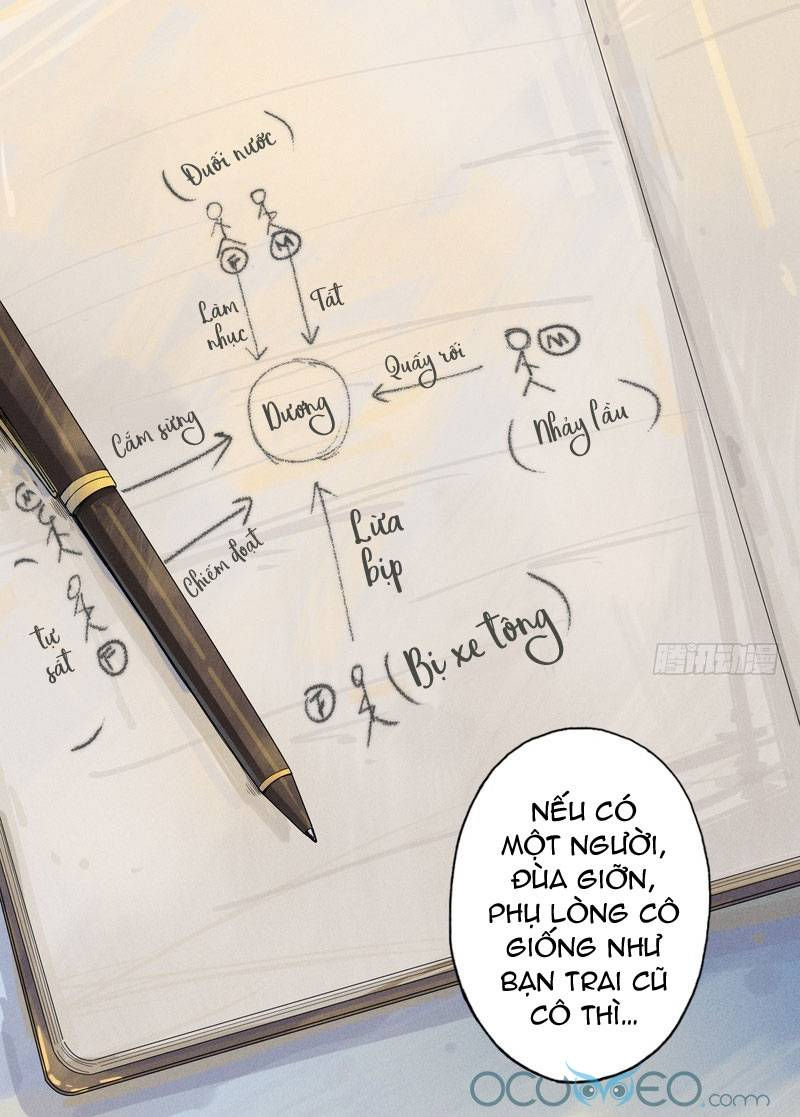 (Đuối nước)
F
M
Làm
nhục
Tát
Quấy rối
M
Dương
(Nhảy lầu)
Cắm sừng
Chiếm đoạt
Lừa
bịp
tự
sát
F
F
(Bị xe tông)
腾讯动漫
NẾU CÓ
MỘT NGƯỜI,
ĐÙA GIỠN,
PHỤ LÒNG CÔ
GIỐNG NHƯ
BẠN TRAI CŨ
CÔ THÌ...
OCUMEO.com